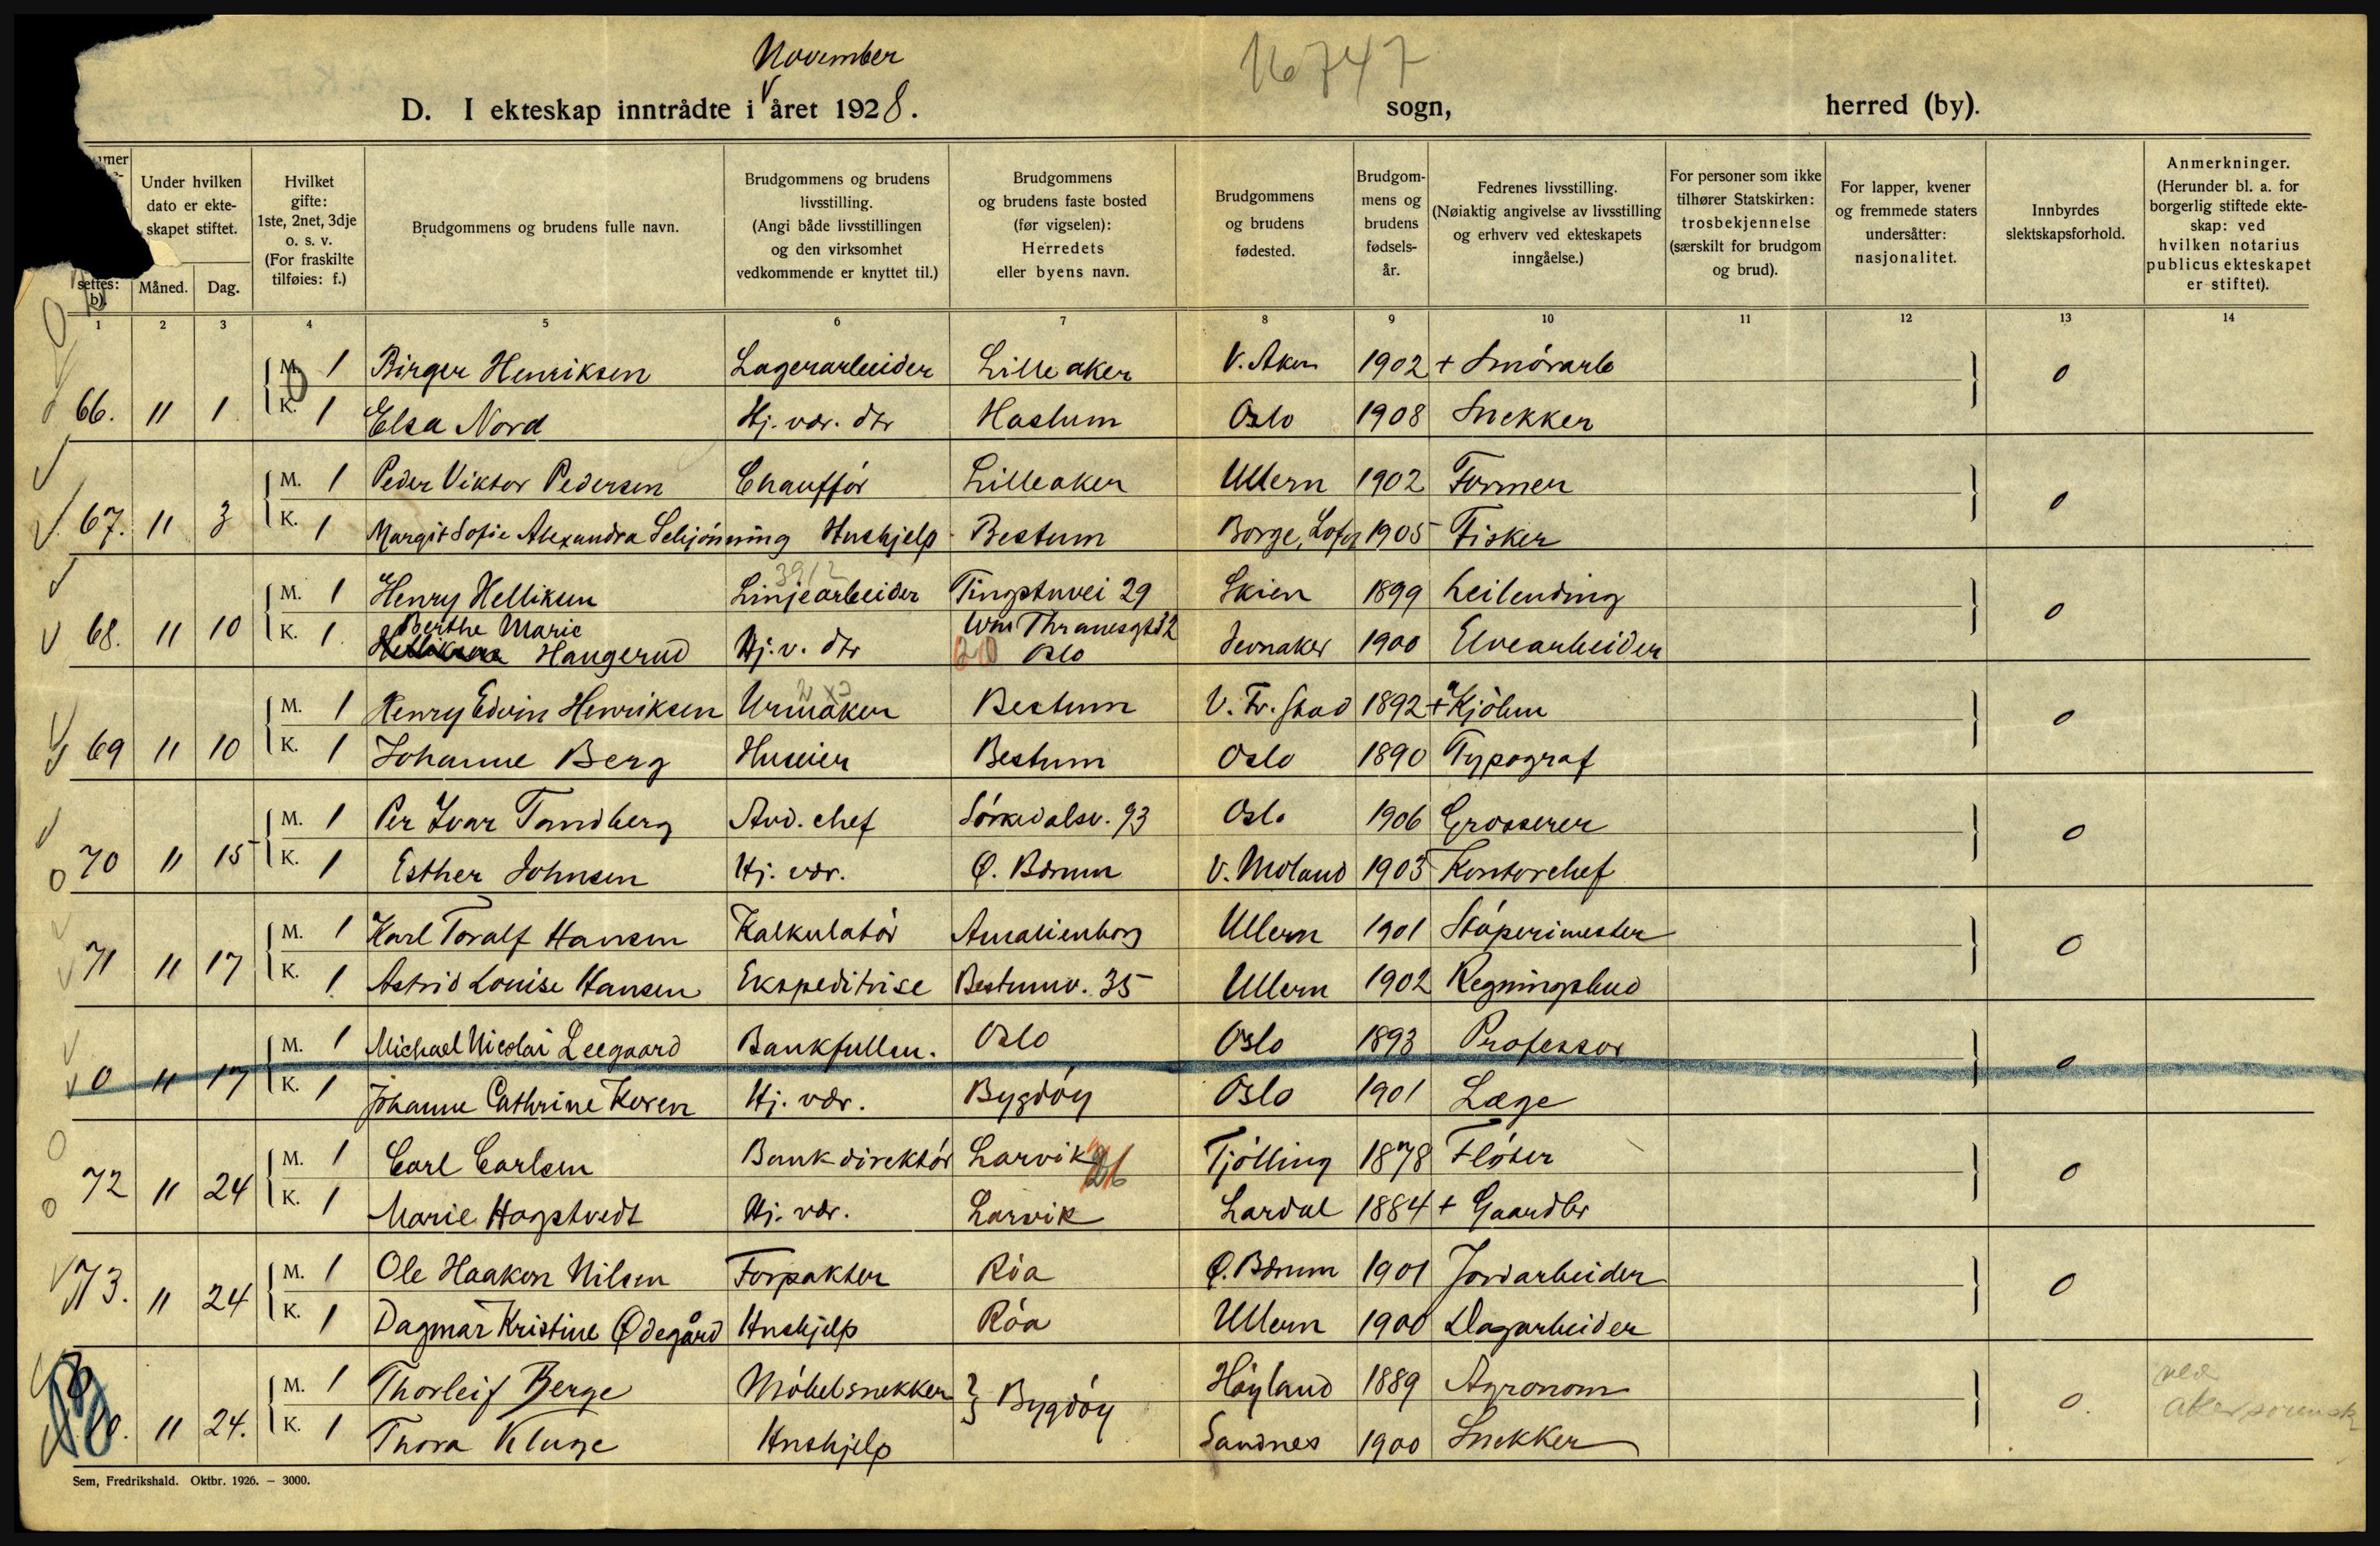 November
16747
D. I ekteskap inntrådte i året 1928. sogn, herred (by).
Under hvilken dato er ekteskapet stiftet.
Måned. Dag.
Hvilket gifte: 1ste, 2net, 3dje o. s. v. (For fraskilte tilføies: f.)
Brudgommens og brudens fulle navn.
Brudgommens og brudens livsstilling. (Angi både livsstillingen og den virksomhet vedkommende er knyttet til.)
Brudgommens og brudens faste bosted (før vigselen): Herredets eller byens navn.
Brudgommens og brudens fødested.
Brudgommens og brudens fødselsår.
Fedrenes livsstilling. (Nøiaktig angivelse av livsstilling og erhverv ved ekteskapets inngåelse.)
For personer som ikke tilhører Statskirken: trosbekjennelse (særskilt for brudgom og brud).
For lapper, kvener og fremmede staters undersåtter: nasjonalitet.
Innbyrdes slektskapsforhold.
Anmerkninger. (Herunder bl. a. for borgerlig stiftede ekteskap: ved hvilken notarius publicus ekteskapet er stiftet).
1 2 3 4 5 6 7 8 9 10 11 12 13 14
M. 1 Birger Henriksen Lagerarbeider Lilleaker V. Aker 1902 + Smörarb 0
66. 11 1 K. 1 Elsa Nord Hj. vær. dtr Haslum Oslo 1908 Snekker
M. 1 Peder Viktor Pedersen Chauffór Lilleaker Ullern 1902 Formen 0
67. 11 3 K. 1 Margit Sofie Alexandra Schjónning Hushjelp Bestum Borge, Lofot 1905 Fisker
3912
M. 1 Henry Helliksen Linjearbeider Tingstuvei 29 Skien 1899 Leilending 0
Berthe Marie Wm Thranesgt 32
68. 11 10 K. 1 Haugerud Hj. v. dtr Oslo Jevnaker 1900 Elvearbeider
M. 1 Henry Edvin Henriksen Urmaker Bestum V. Fr. stad 1892 + Kjöbm 0
69 11 10 K. 1 Johanne Berg Huseier Bestum Oslo 1890 Typograf
M. 1 Per Ivar Tandberg Avd. chef Sórkedalsv. 93 Oslo 1906 Grosserer 0
70 11 15 K. 1 Esther Johnsen Hj. vær. Ø. Bærum V. Moland 1903 Kontorchef
M. 1 Karl Toralf Hansen Kalkulatór Amalienborg Ullern 1901 Stóperimester 0
71 11 17 K. 1 Astrid Louise Hansen Ekspeditrise Bestumv. 35 Ullern 1902 Regningsbud
M. 1 Michael Nicolai Leegaard Bankfullm. Oslo Oslo 1893 Professor 0
0 11 17 K. 1 Johanne Cathrine Koren Hj. vær. Bygdóy Oslo 1901 Læge
M. 1 Carl Carlsen Bankdirektór Larvik Tjólling 1878 Flóter 0
72 11 24 K. 1 Marie Hagstvedt Hj. vær. Larvik Lardal 1884 + Gaardbr
M. 1 Ole Haakon Nilsen Forpakter Róa Ø. Bærum 1901 Jordarbeider 0
73. 11 24 K. 1 Dagmar Kristine Ødegård Hushjelp Róa Ullern 1900 Dagarbeider
M. 1 Thorleif Berge Móbelsnekker } Bygdóy Hóyland 1889 Agronom 0. ved
11 24. K. 1 Thora Kluge Hushjelp Sandnes 1900 Snekker
Sem, Fredrikshald. Oktbr. 1926. – 3000.